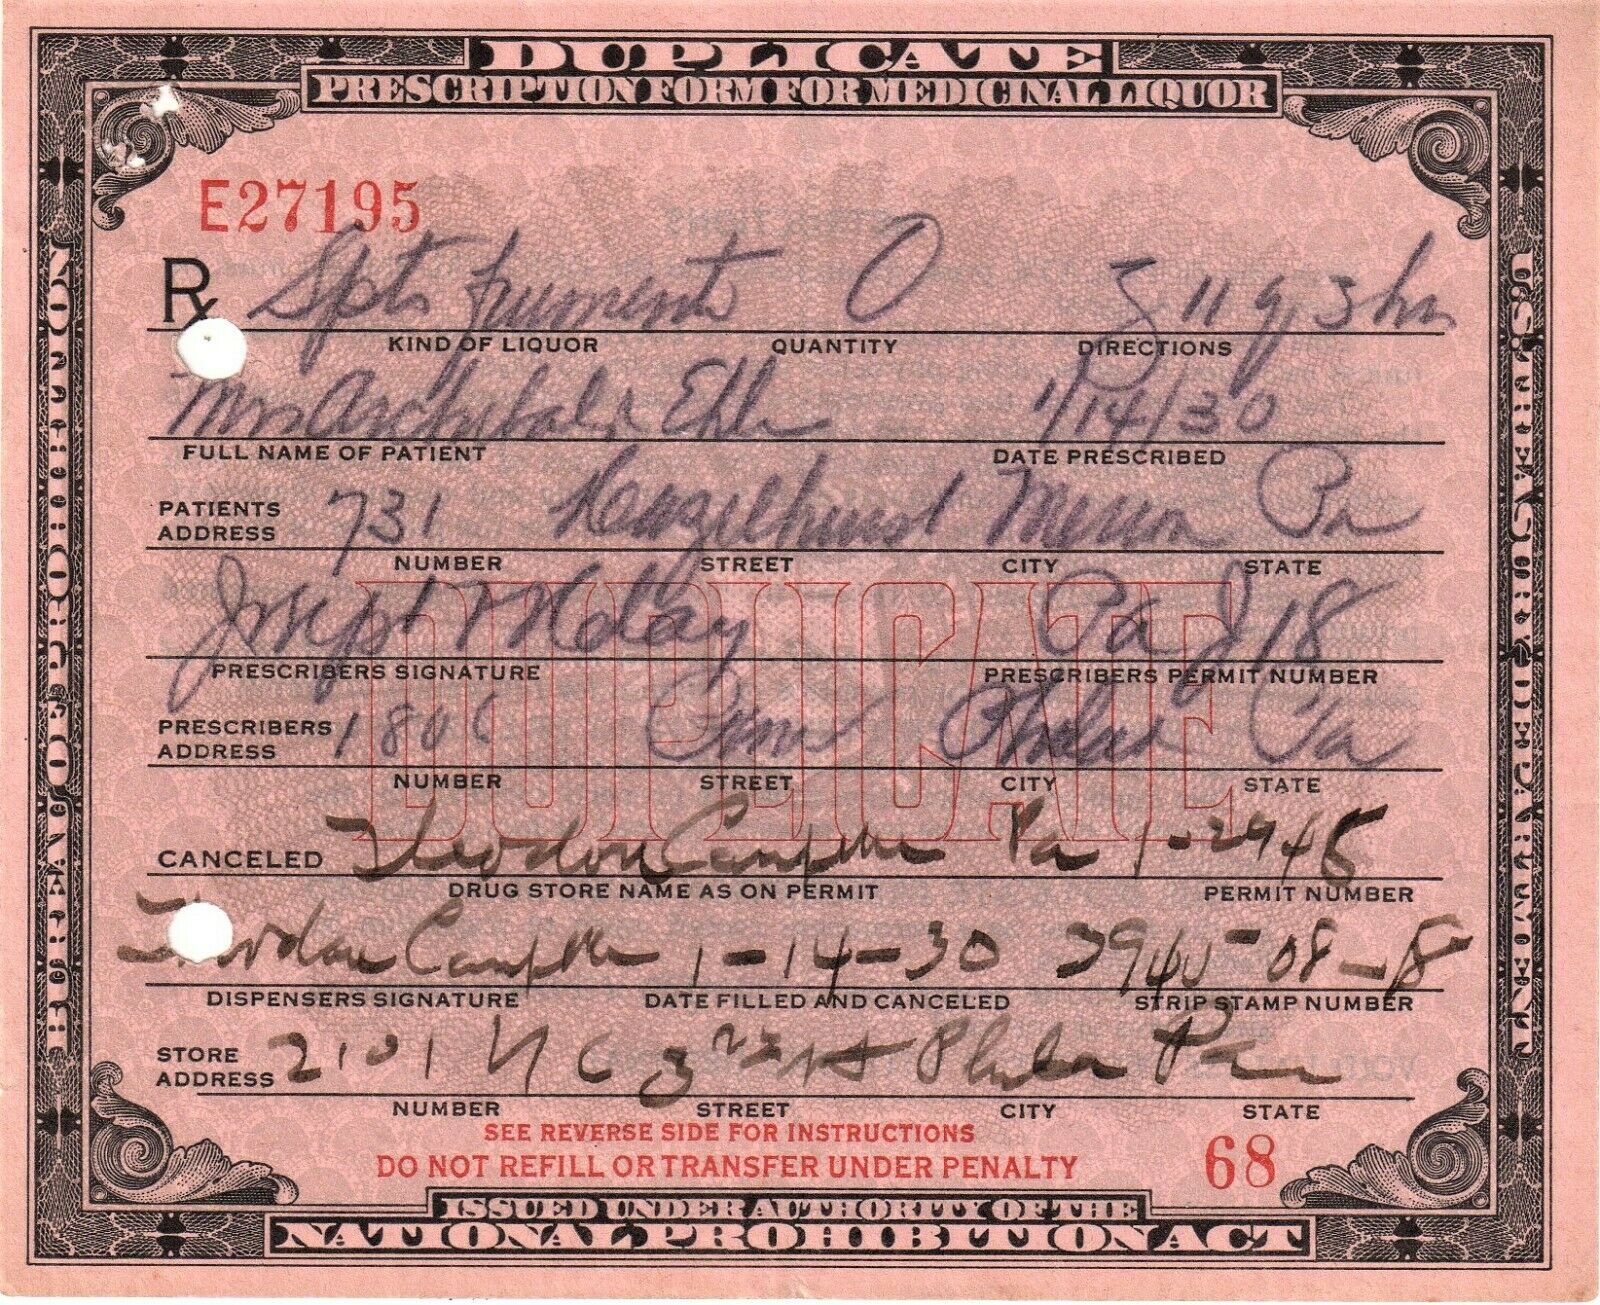 DUPLICATE
PRESCRIPTION FORM FOR MEDICINAL LIQUOR
E27195
Rx Spts Frumenti O 3 11 q 3 hr
KIND OF LIQUOR QUANTITY DIRECTIONS
Mrs Archibald 1/14/30
FULL NAME OF PATIENT DATE PRESCRIBED
PATIENTS ADDRESS 731 Merion Pa
NUMBER STREET CITY STATE
Joseph Pa J 18
PRESCRIBERS SIGNATURE PRESCRIBERS PERMIT NUMBER
PRESCRIBERS ADDRESS 1806 Phila Pa
NUMBER STREET CITY STATE
DUPLICATE
CANCELED Theodore Campbell Pa 1-2945
DRUG STORE NAME AS ON PERMIT PERMIT NUMBER
Theodore Campbell 1-14-30
DISPENSERS SIGNATURE DATE FILLED AND CANCELED STRIP STAMP NUMBER
STORE ADDRESS 2101 N 33rd St Phila Pa
NUMBER STREET CITY STATE
SEE REVERSE SIDE FOR INSTRUCTIONS
DO NOT REFILL OR TRANSFER UNDER PENALTY 68
ISSUED UNDER AUTHORITY OF THE
NATIONAL PROHIBITION ACT